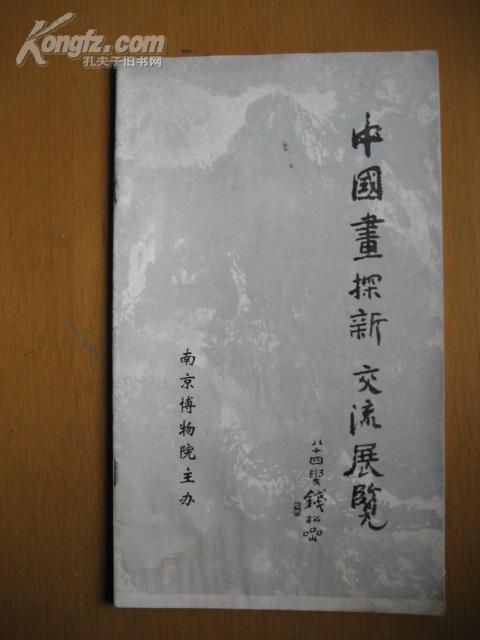 Kongfz.com
孔夫子旧书网
中國畫探新交流展覽
八十四叟錢松喦
南京博物院主办